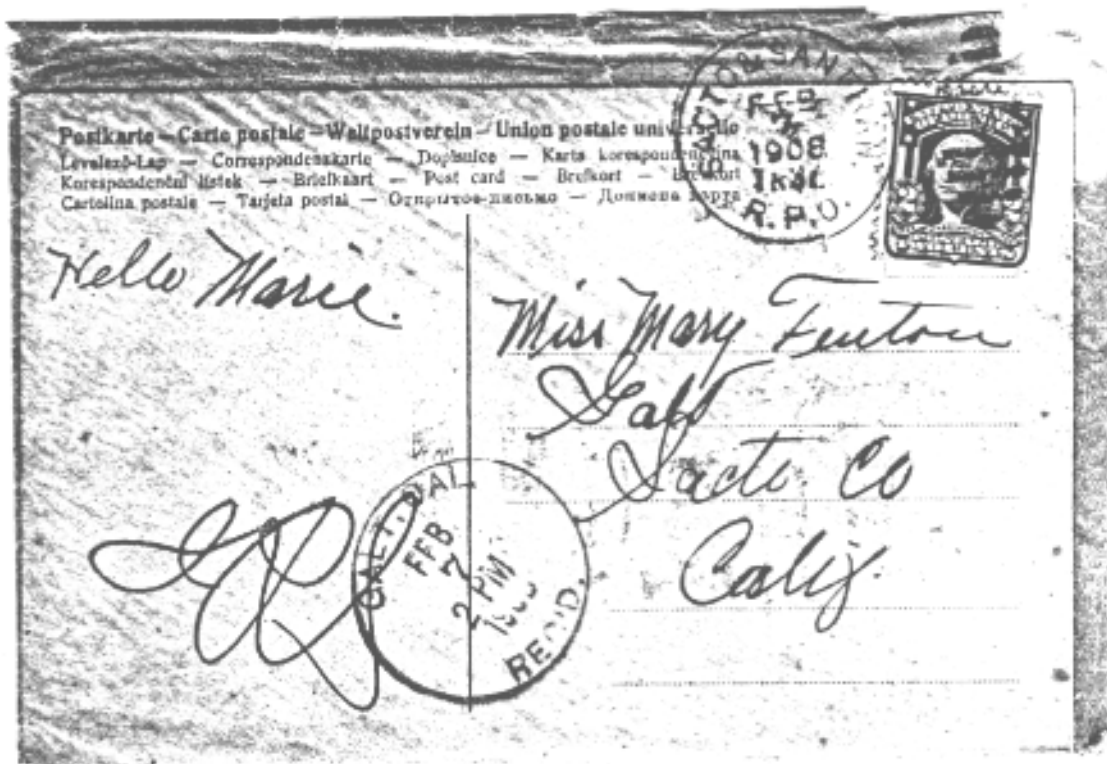 Postkarte — Carte postale — Weltpostverein — Union postale universelle
Levelező-Lap — Correspondenzkarte — Dopisnice — Karta korespondencyjna
Korespondenční lístek — Briefkaart — Post card — Brefkort — Brevkort
Cartolina postale — Tarjeta postal — Открытое письмо — Дописна карта
SACTO & SAN
FEB
1908
R.P.O.
Hello Marie.
Miss Mary Fenton
Galt
Sacto. Co
Calif
GALT, CAL.
FEB
7
2 PM
1908
REC'D.